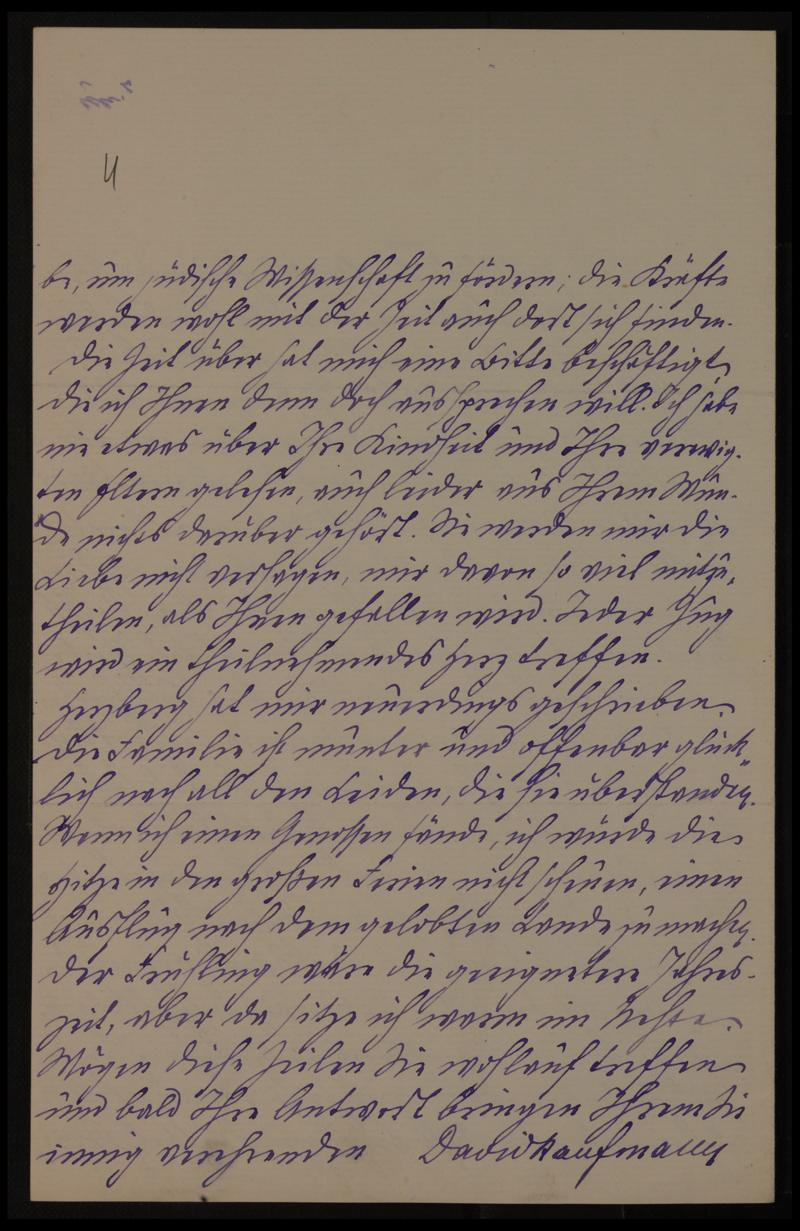 4
be, um jüdische Wissenschaft zu fördern; die Kräfte
werden wohl mit der Zeit auch dort sich finden.
Die Zeit über hat mich eine Bitte beschäftigt,
die ich Ihnen denn doch aussprechen will. Ich habe
nie etwas über Ihre Kindheit und Ihre verewig-
ten Eltern gelesen, auch leider aus Ihrem Mun-
de nichts darüber gehört. Sie werden mir die
Liebe nicht versagen, mir davon so viel mitzu-
theilen, als Ihnen gefallen wird. Jeder Zug
wird ein theilnehmendes Herz treffen.
Herzberg hat mir neuerdings geschrieben.
Die Familie ist munter und offenbar glück-
lich nach all den Leiden, die sie überstanden.
Wenn ich einen Genossen fände, ich würde die
Hitze in den großen Ferien nicht scheuen, einen
Ausflug nach dem gelobten Lande zu machen.
Der Frühling wäre die geeignetere Jahres-
zeit, aber da sitze ich warm im Neste.
Mögen diese Zeilen Sie wohlauf treffen
und bald Ihre Antwort bringen Ihrem Sie
innig verehrenden David Kaufmann